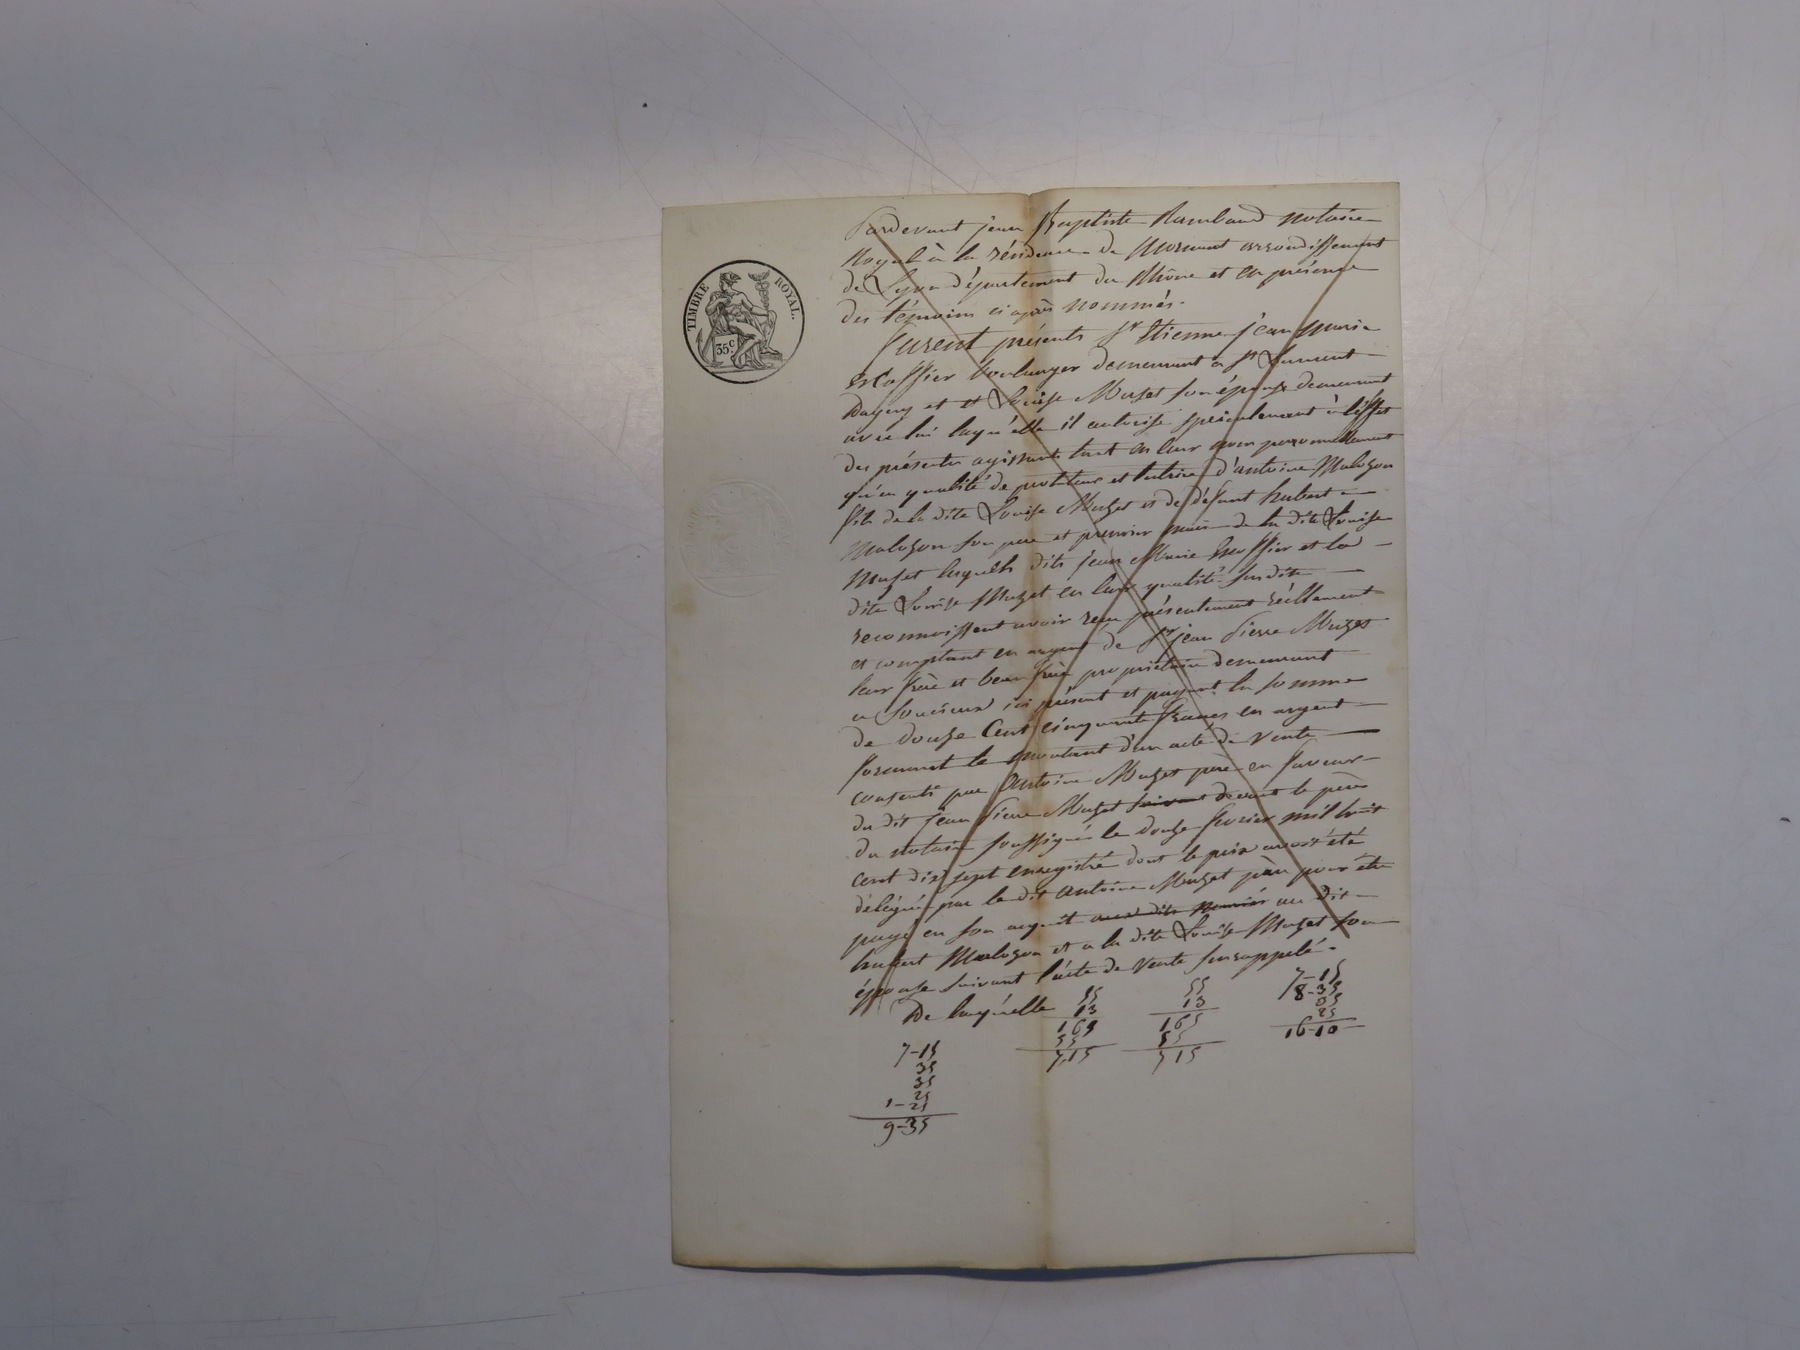 TIMBRE ROYAL.
35 c
Pardevant jean Baptiste Rambaud notaire
Royal à la résidence de Mornant arrondissement
de Lyon département du Rhône et en présence
des témoins ci après nommés.
furent présents Sr Etienne jean Marie
Escoffier boulanger demeurant à St Laurent
Dagny et et Louise Muzet son épouse demeurant
avec lui laquelle il autorise spécialement à l'effet
des présentes agissants tant en leur nom personnellement
qu'en qualité de protuteur et tutrice d'antoine Malozon
fils de la dite Louise Muzet et de défunt hubert
Malozon son pere et premier mari de la dite Louise
Muzet lesquels dits jean Marie Escoffier et la
dite Louise Muzet en leur qualité susdite
reconnoissent avoir reçu présentement réellement
et comptant en argent de Sr jean Pierre Muzet
leur frère et beau frère propriétaire demeurant
a Soucieux ici présent et payant la somme
de douze Cent cinquante francs en argent
formant le montant d'un acte de vente
consenti par Antoine Muzet père en faveur
du dit jean Pierre Muzet suivant devant le père
du notaire soussigné le douze fevrier mil huit
cent dix sept enregistré dont le prix avoit été
délégué par le dit antoine Muzet père pour être
payé en son acquit aux dits au dit
hubert Malozon et a la dite Louise Muzet son
épouse suivant l'acte de vente susrappelé.
De laquelle
55 55 7-15
13 13 8-35
165 165 35
55 55 25
7,15 715 16-10
7-15
35
35
25
1-25
9-35